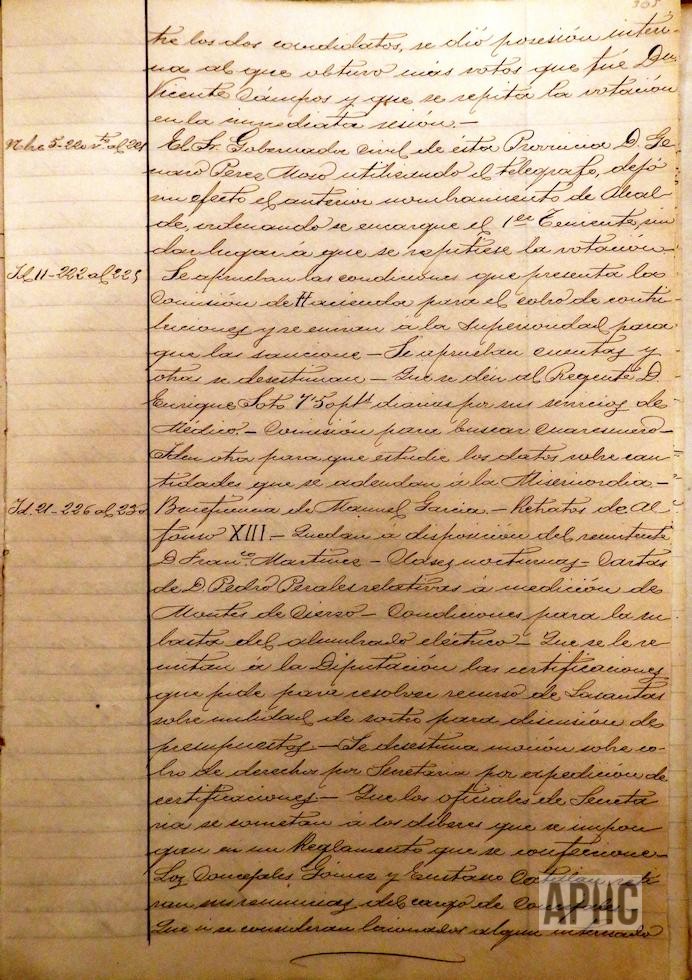 305
tre los dos candidatos, se dió posesión interi-
na al que obtuvo más votos que fué Dn.
Vicente Campos y que se repita la votación
en la inmediata sesión.—
Nbre 5-220 vto al 221
El Sr. Gobernador civil de ésta Provincia D. Ge-
naro Perez Moso utilizando el telegrafo, dejó
sin efecto el anterior nombramiento de Alcal-
de, ordenando se encargue el 1er Teniente, sin
dar lugar á que se repitiese la votación.—
Id 11-222 al 225
Se aprueban las condiciones que presenta la
Comisión de Hacienda para el cobro de contri-
buciones y se envian á la Superioridad para
que las sancione — Se aprueban cuentas y
otras se desestiman — Que se den al Regente D.
Enrique Soto 7'50 ptas diarias por sus servicios de
Médico.— Comisión para buscar cuaresmero—
Iden otra para que estudie los datos sobre can-
tidades que se adeudan á la Misericordia—
Id. 21-226 al 230
Beneficencia de Manuel Garcia.— Retratos de Al-
fonso XIII — Quedan á disposición del remitente
D. Franco. Martinez — Clases nocturnas — Cartas
de D. Pedro Perales relativas á medición de
Montes de Cierzo — Condiciones para la su-
basta del alumbrado eléctrico — Que se le re-
mitan á la Diputación las certificaciones
que pide para resolver recurso de Lasantas
sobre nulidad de sorteo para discusión de
presupuestos — Se desestima moción sobre co-
bro de derechos por Secretaria por expedición de
certificaciones — Que los oficiales de Secreta-
ria se sometan á los deberes que se impon-
gan en un Reglamento que se confeccione —
Los Concejales Gómez y Eustasio
ran sus renuncias del cargo de Concejales
Que si se consideran lesionados algun interesado
APHC